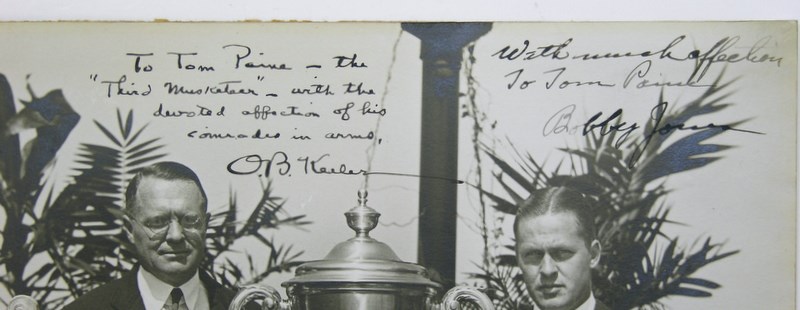 To Tom Paine – the
"Third Musketeer" – with the
devoted affection of his
comrades in arms,
O.B. Keeler
With much affection
To Tom Paine
Bobby Jones